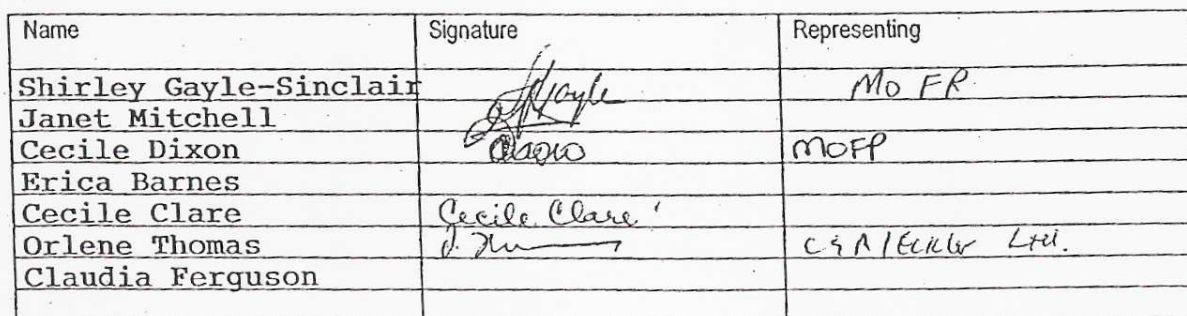 Name Signature Representing
Shirley Gayle-Sinclair Gayle MoFP
Janet Mitchell
Cecile Dixon MOFP
Erica Barnes
Cecile Clare Cecile Clare
Orlene Thomas Ltd.
Claudia Ferguson